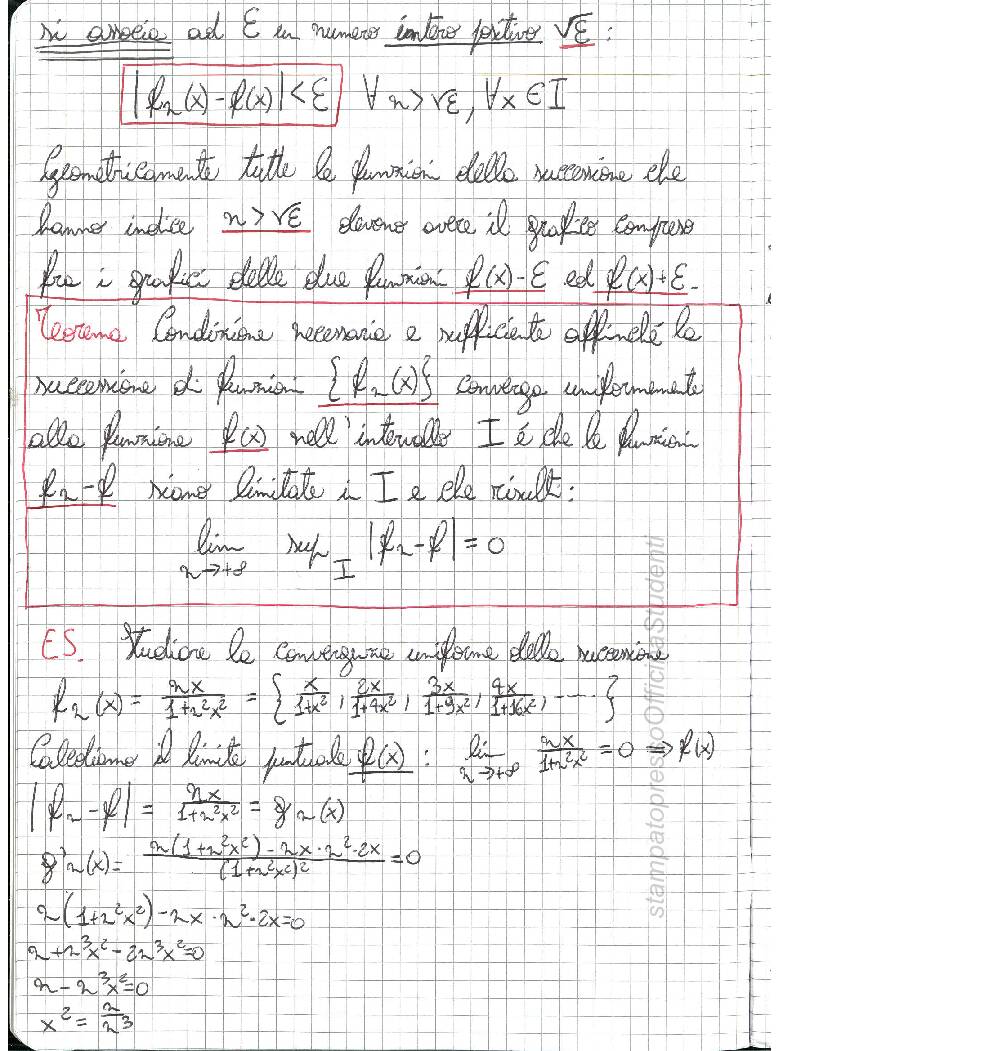 si associa ad ε un numero intero positivo √ε :
|fn(x)-f(x)|<ε ∀n>√ε, ∀x∈I
Geometricamente tutte le funzioni della successione che
hanno indice n>√ε devono avere il grafico compreso
fra i grafici delle due funzioni f(x)-ε ed f(x)+ε.
Teorema Condizione necessaria e sufficiente affinché la
successione di funzioni {fn(x)} converga uniformemente
alla funzione f(x) nell'intervallo I é che le funzioni
fn-f siano limitate i I e che risult:
lim n→+∞ sup I |fn-f|=0
ES. Studiare la convergenza uniforme della successione
fn(x) = nx/(1+n²x²) = { x/(1+x²), 2x/(1+4x²), 3x/(1+9x²), 4x/(1+16x²), ---- }
Calcoliamo il limite puntuale f(x) : lim n→+∞ nx/(1+n²x²) = 0 ⇒ f(x)
|fn-f| = nx/(1+n²x²) = gn(x)
g'n(x) = (n(1+n²x²)-nx·n²·2x)/(1+n²x²)² = 0
n(1+n²x²)-nx·n²·2x=0
n+n³x²-2n³x²=0
n-n³x²=0
x² = n/n³
stampatopressoOfficinaStudenti